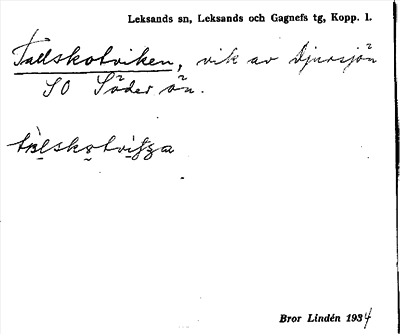 Leksands sn, Leksands och Gagnefs tg, Kopp. 1.
Tallskotviken, vik av Djursjön
SO Söder ön.
Bror Lindén 1934